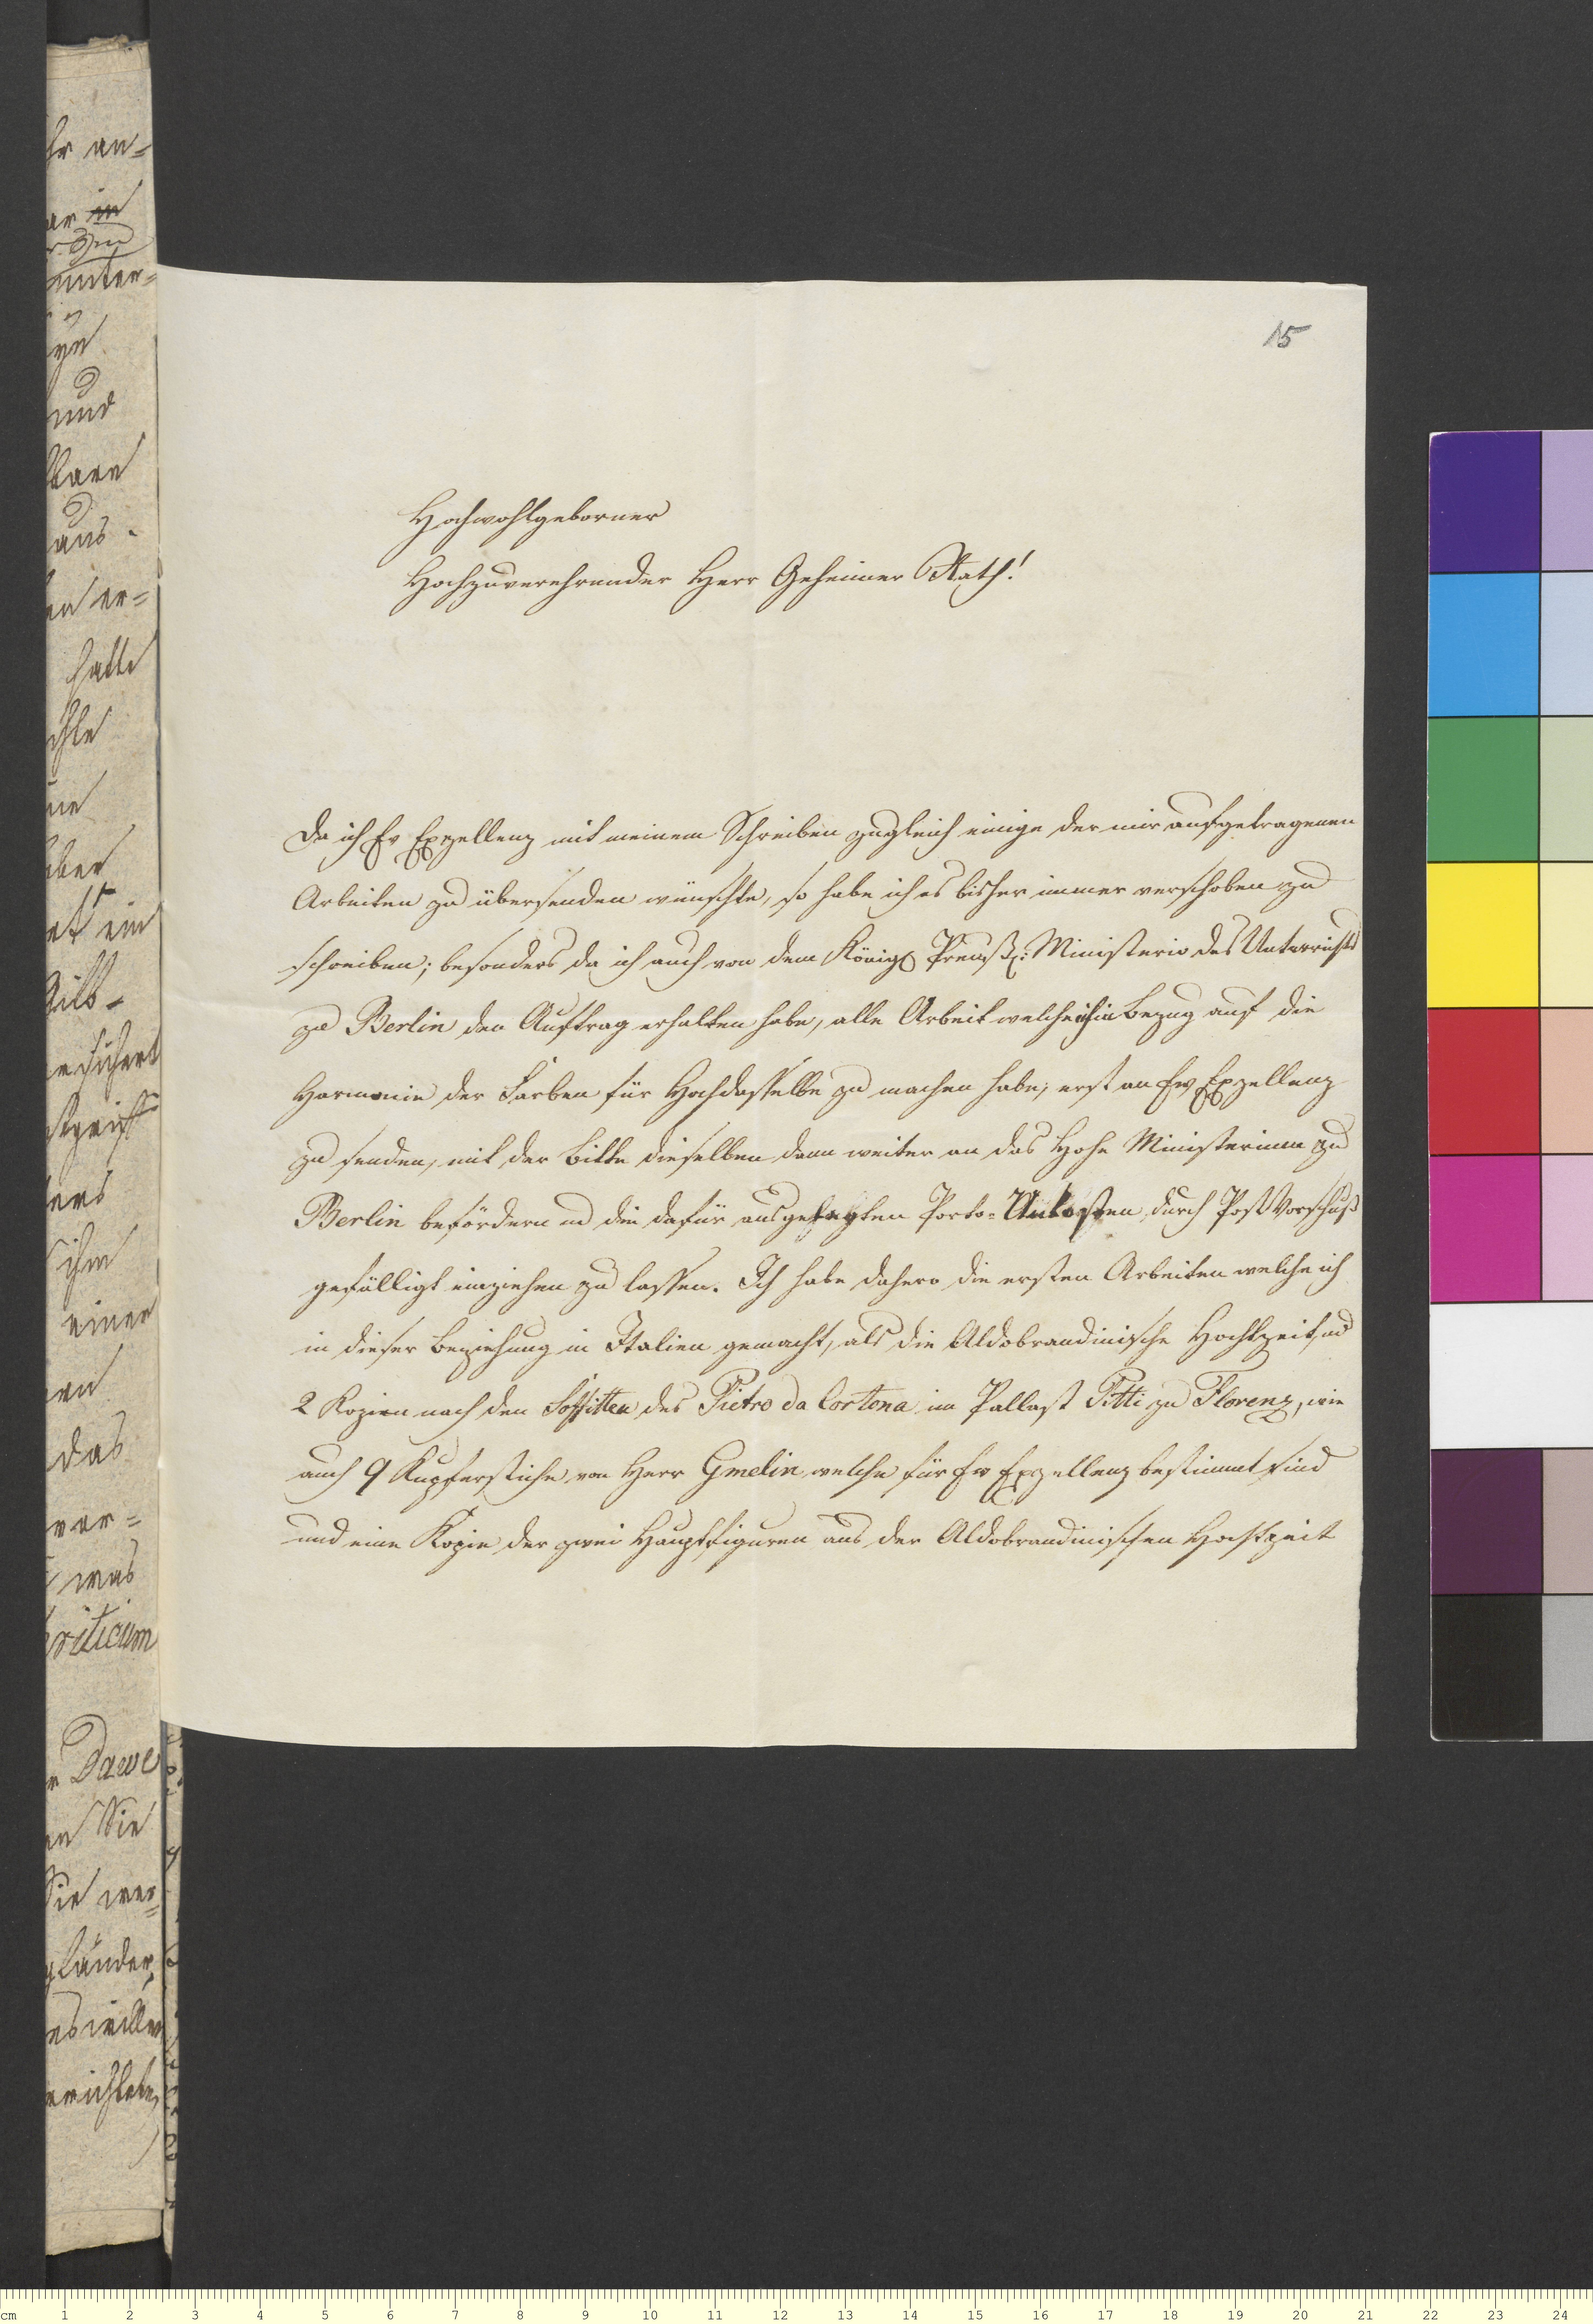 15
Hochwohlgeborner
Hochzuverehrender Herr Geheimer Rath!
Da ich Ew Exzellenz mit meinem Schreiben zugleich einige der mir aufgetragenen
Arbeiten zu übersenden wünschte, so habe ich es bisher immer verschoben zu
schreiben; besonders da ich auch von dem Königl Preuß: Ministerio des Unterrichts
zu Berlin den Auftrag erhalten habe, alle Arbeit welche ich in Bezug auf die
Harmonie der Farben für Hochdasselbe zu machen habe, erst an Ew Exzellenz
zu senden, mit der Bitte dieselben dann weiter an das Hohe Ministerium zu
Berlin befördern und die dafür ausgelegten Porto-Unkosten, durch Post Vorschuß
gefälligst einziehen zu lassen. Ich habe dahero die ersten Arbeiten welche ich
in dieser Beziehung in Italien gemacht, als die Aldobrandinische Hochtzeit, und
2 Kopien nach den Soffitten des Pietro da Cortona im Pallast Pitti zu Florenz, wie
auch 9 Kupferstiche von Herr Gmelin, welche für Ew Exzellenz bestimmt sind
und eine Kopie der zwei Hauptfiguren aus der Aldobrandinischen Hochtzeit
hr an=
in
unter=
und
aus.
en er=
hatte
über
ein
ihm
einer
das
ver=
was
Dawe
Sie
Sie wer=
länder,